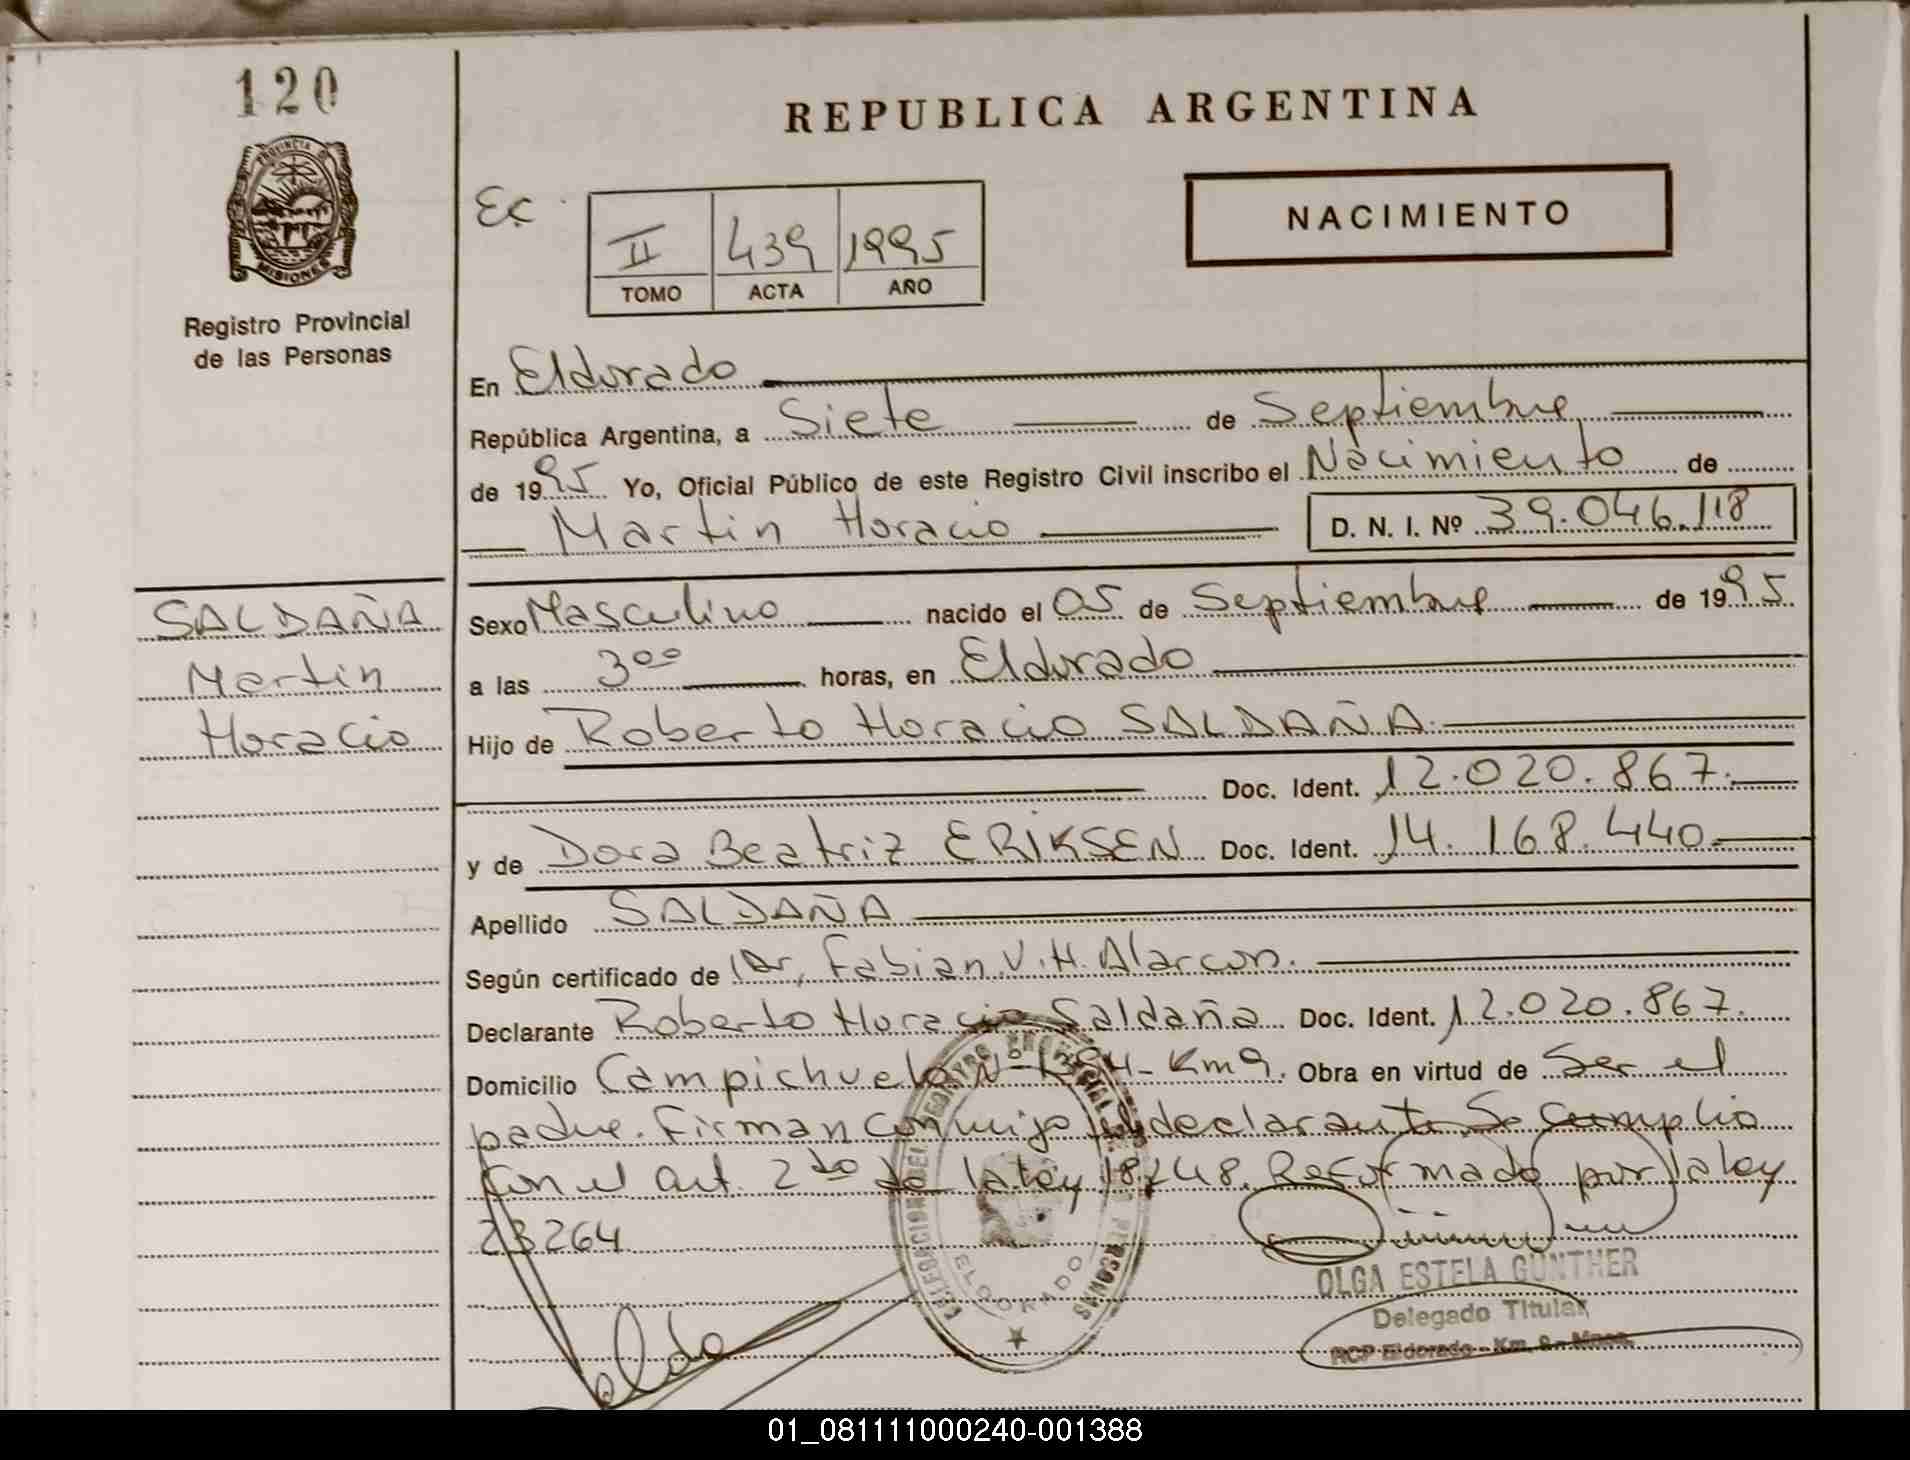 120
REPUBLICA ARGENTINA
PROVINCIA DE
MISIONES
Registro Provincial
de las Personas
Ec
II 439 1995
TOMO ACTA AÑO
NACIMIENTO
En Eldorado
República Argentina, a Siete de Septiembre
de 1995 Yo, Oficial Público de este Registro Civil inscribo el Nacimiento de
Martin Horacio D. N. I. Nº 39.046.118
SALDAÑA
Martin
Horacio
Sexo Masculino nacido el 05 de Septiembre de 1995
a las 3⁰⁰ horas, en Eldorado
Hijo de Roberto Horacio SALDAÑA.
Doc. Ident. 12.020.867.
y de Dora Beatriz ERIKSEN Doc. Ident. 14.168.440.
Apellido SALDAÑA
Según certificado de Dr. Fabian V.H. Alarcon.
Declarante Roberto Horacio Saldaña Doc. Ident. 12.020.867.
Domicilio Campichuelo Nº - Km 9. Obra en virtud de Ser el
padre. Firman conmigo declarante Se Cumplio
Con el art. 2do de la ley 18248. Reformado por la ley
23264
DELEGACION DEL REGISTRO PROVINCIAL PERSONAS
ELDORADO
OLGA ESTELA GUNTHER
Delegado Titular
RCP Eldorado - Km. 9 - Mnes.
01_081111000240-001388